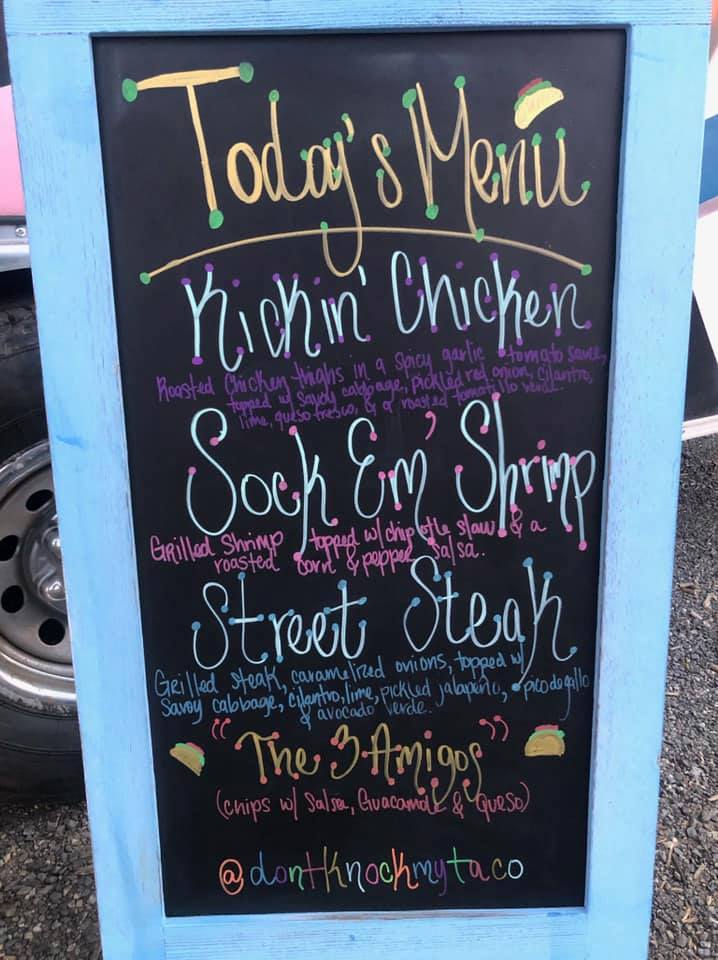 Today's Menu
Kickin' Chicken
Roasted Chicken thighs in a spicy garlic tomato sauce,
topped w/ Savoy cabbage, pickled red onion, cilantro,
lime, queso fresco, & a roasted tomatillo verde.
Sock Em' Shrimp
Grilled Shrimp topped w/ chipotle slaw & a
roasted corn & pepper salsa.
Street Steak
Grilled steak, caramelized onions, topped w/
Savoy cabbage, cilantro, lime, pickled jalapeño, pico de gallo
& avocado verde.
"The 3 Amigos"
(chips w/ Salsa, Guacamole & Queso)
@dontknockmytaco